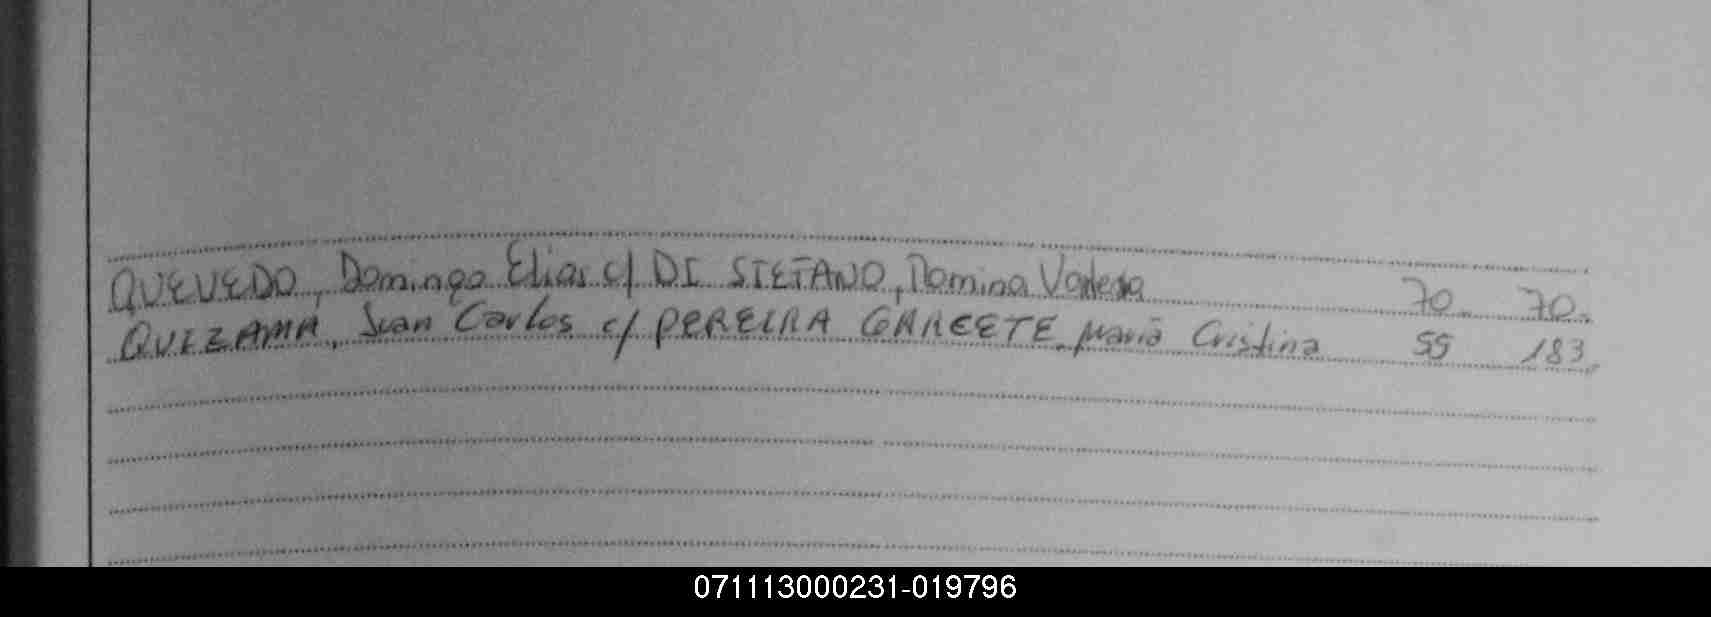 QUEVEDO, Domingo Elias c/ DI STEFANO, Romina Valeria 70. 70.
QUEZAMA, Juan Carlos c/ PEREIRA GARCETE, María Cristina 55 183
071113000231-019796